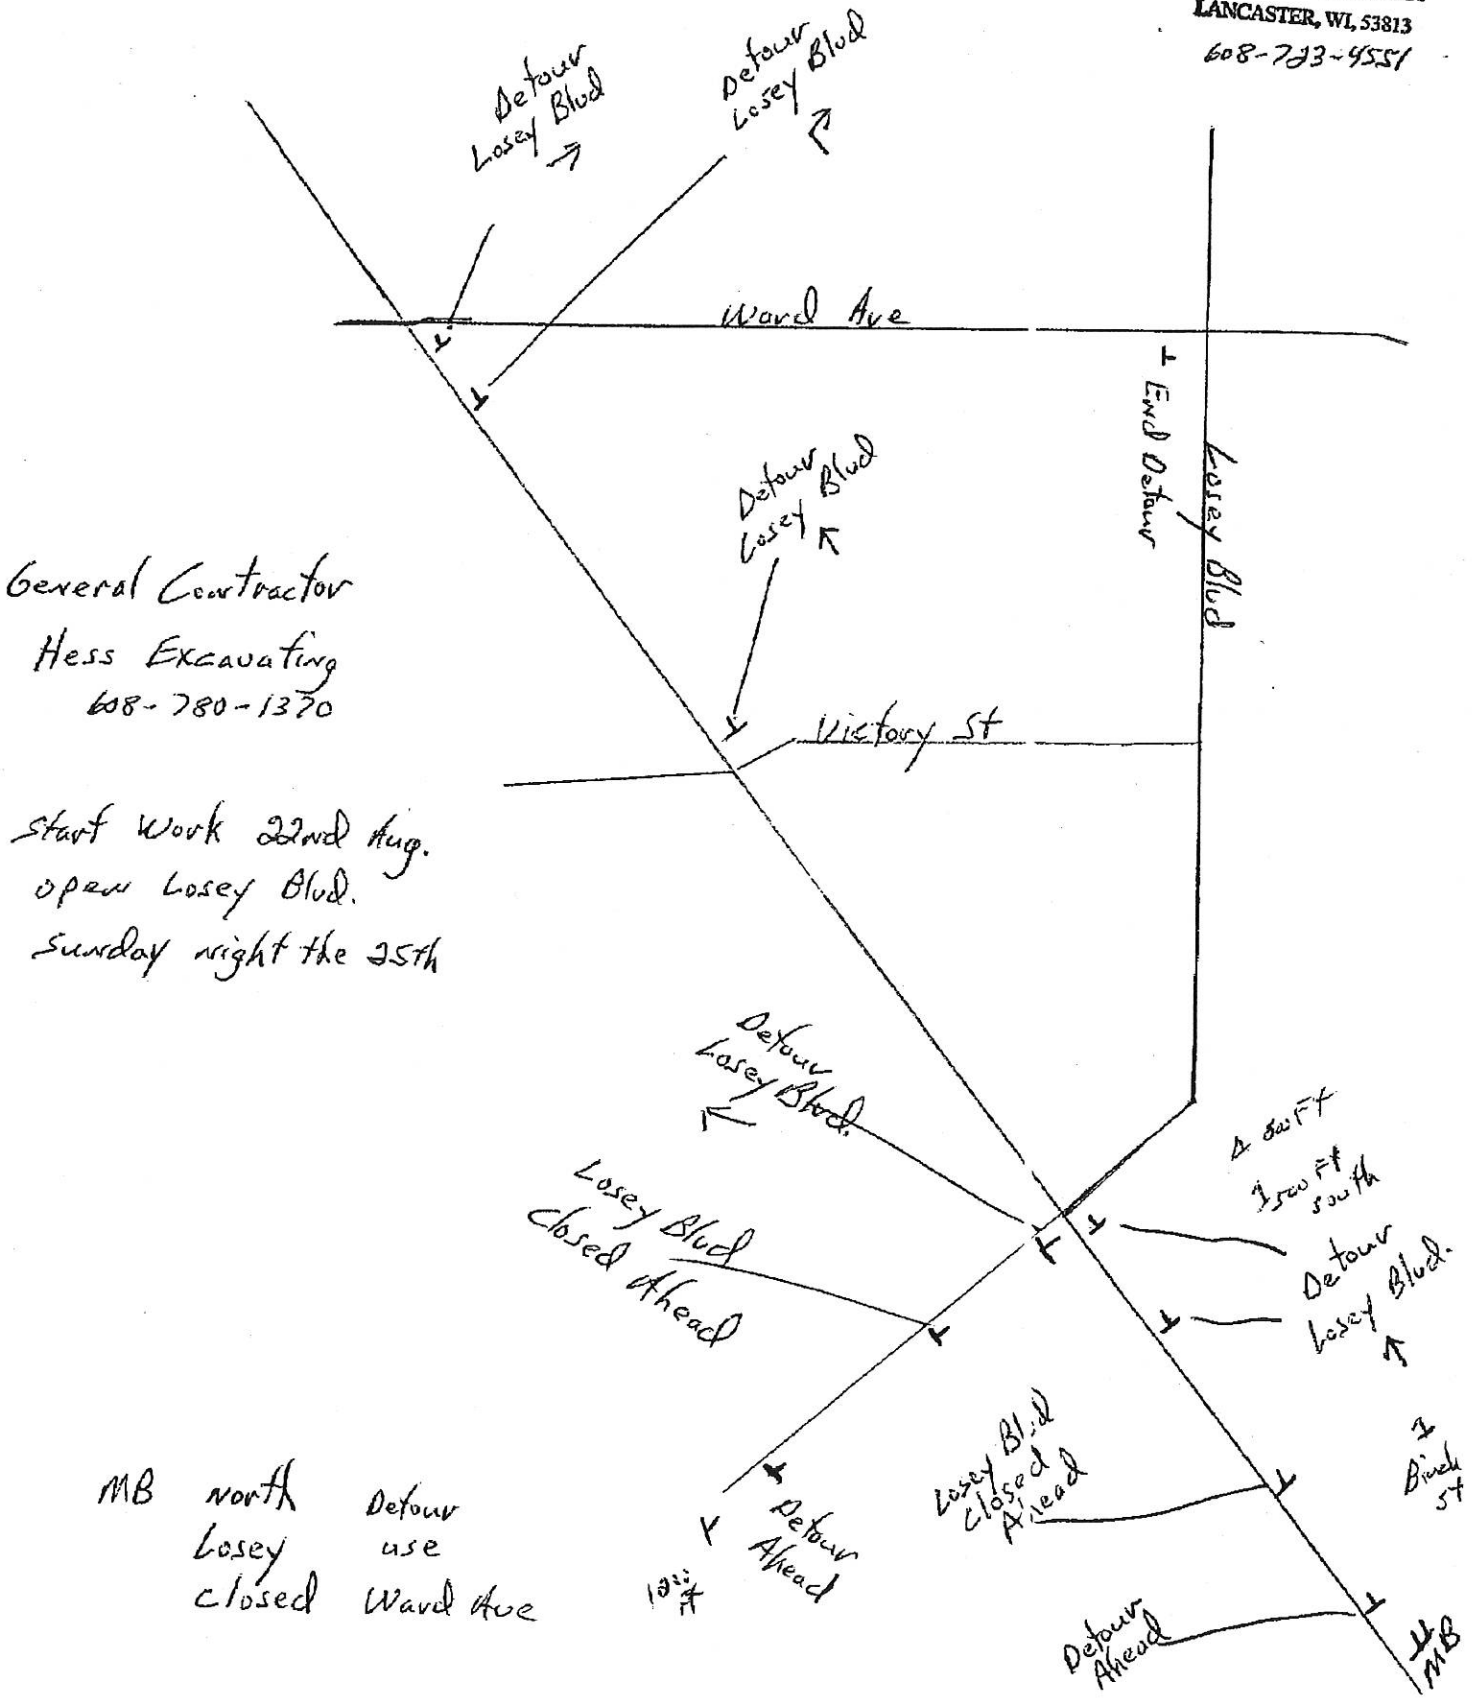 LANCASTER, WI, 53813
608-723-4551
Detour
Losey Blvd
Detour
Losey Blvd
Ward Ave
End Detour
Losey Blvd
Detour
Losey Blvd
General Contractor
Hess Excavating
608-780-1370
Victory St
Start Work 22nd Aug.
open Losey Blvd.
Sunday night the 25th
Detour
Losey Blvd.
500 FT
1500 FT
south
Losey Blvd
Closed Ahead
Detour
Losey Blvd.
Losey Blvd
Closed
Ahead
St
MB north Detour
Losey use
closed Ward Ave
Detour
Ahead
Detour
Ahead
MB